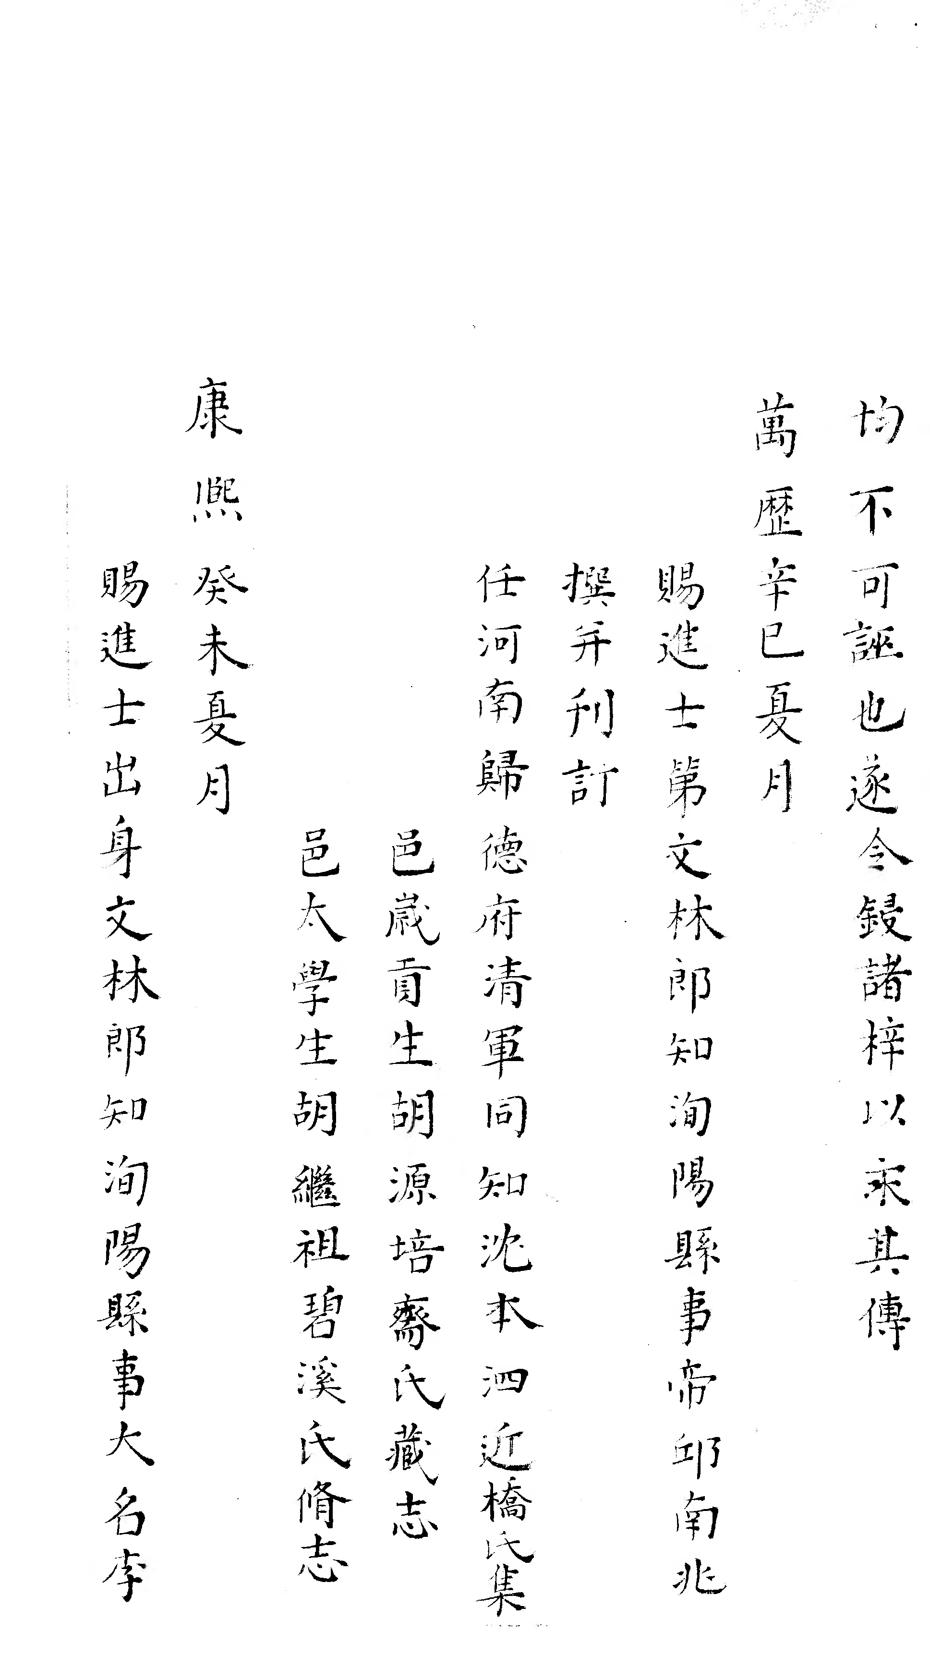 均不可誣也遂令鋟諸梓以永其傳
萬歷辛巳夏月
賜進士第文林郎知洵陽縣事帝邱南兆
撰并刊訂
任河南歸德府清軍同知沈本泗近橋氏集
邑歲貢生胡源培齋氏藏志
邑太學生胡繼祖碧溪氏脩志
康熈癸未夏月
賜進士出身文林郎知洵陽縣事大名李